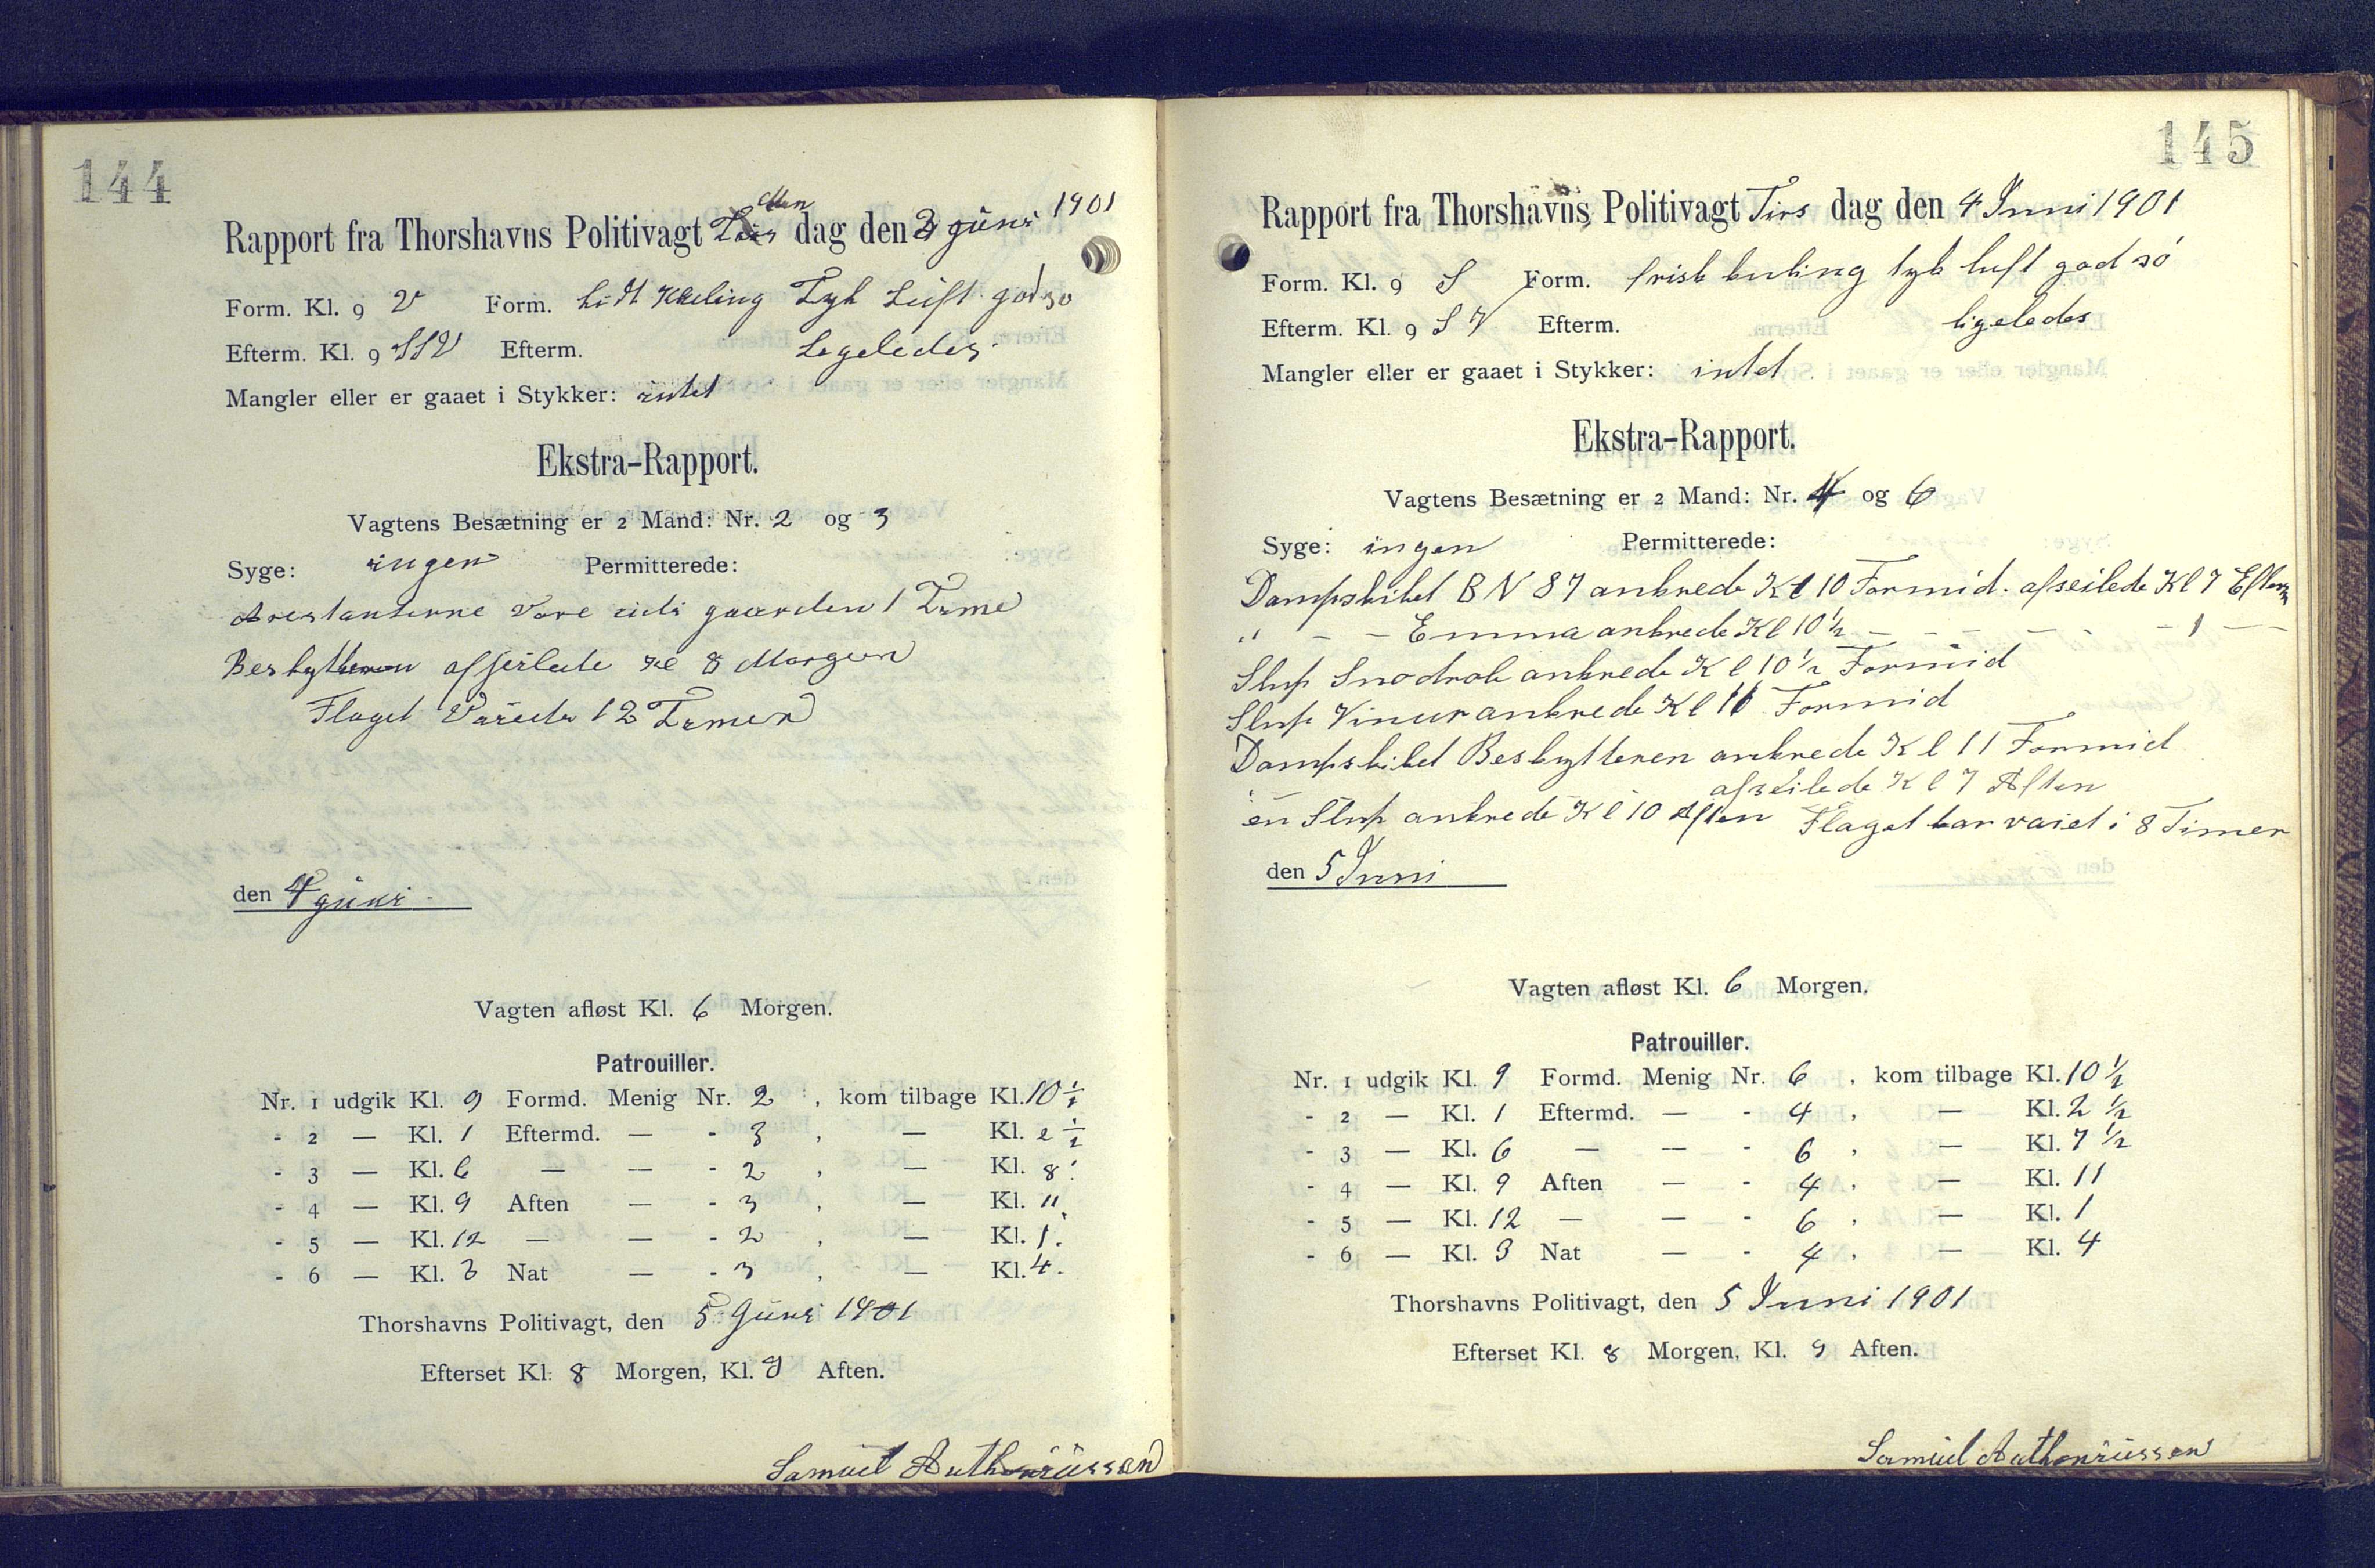 144
Rapport fra Thorshavns Politivagt Man dag den 3 Juni 1901
Form. Kl. 9 V Form. Lidt Kuling Tyk Luft god so
Efterm. Kl. 9 SSV Efterm. Legeledes
Mangler eller er gaaet i Stykker: intet
Ekstra-Rapport.
Vagtens Besætning er 2 Mand: Nr. 2 og 3
Syge: ingen Permitterede:
Arestanterne Vare udi gaarden 1 Time
Beskytteren afseilede Kl 8 Morgen
Flaget Vaiede 12 Timer
den 4 Juni
Vagten afløst Kl. 6 Morgen.
Patrouiller.
Nr. 1 udgik Kl. 9 Formd. Menig Nr. 2, kom tilbage Kl. 10 1/2
- 2 — Kl. 1 Eftermd. — - 3, — Kl. 2 1/2
- 3 — Kl. 6 — — - 2, — Kl. 8.
- 4 — Kl. 9 Aften — - 3, — Kl. 11
- 5 — Kl. 12 — — - 2, — Kl. 1.
- 6 — Kl. 3 Nat — - 3, — Kl. 4.
Thorshavns Politivagt, den 5 Juni 1901
Efterset Kl. 8 Morgen, Kl. 9 Aften.
Samuel Anthoniussen
145
Rapport fra Thorshavns Politivagt Tirs dag den 4 Juni 1901
Form. Kl. 9 S Form. frisk kuling tyk luft god sö
Efterm. Kl. 9 S V Efterm. ligeledes
Mangler eller er gaaet i Stykker: intet
Ekstra-Rapport.
Vagtens Besætning er 2 Mand: Nr. 4 og 6
Syge: ingen Permitterede:
Dampskibet B N 87 ankrede Kl 10 Formid. afseilede Kl 7 Efterm
" - - Emma ankrede Kl 10 1/2 - - - - - - 1 - -
Slup Snodrok ankrede Kl 10 1/2 Formid
Slup Vinur ankrede Kl 11 Formid
Dampskibet Beskytteren ankrede Kl 11 Formid
afseilede Kl 7 Aften
en Slup ankrede Kl 10 Aften Flaget har vaiet i 8 Timer
den 5 Juni
Vagten afløst Kl. 6 Morgen.
Patrouiller.
Nr. 1 udgik Kl. 9 Formd. Menig Nr. 6, kom tilbage Kl. 10 1/2
- 2 — Kl. 1 Eftermd. — - 4, — Kl. 2 1/2
- 3 — Kl. 6 — — - 6, — Kl. 7 1/2
- 4 — Kl. 9 Aften — - 4, — Kl. 11
- 5 — Kl. 12 — — - 6, — Kl. 1
- 6 — Kl. 3 Nat — - 4, — Kl. 4
Thorshavns Politivagt, den 5 Juni 1901
Efterset Kl. 8 Morgen, Kl. 9 Aften.
Samuel Anthoniussen